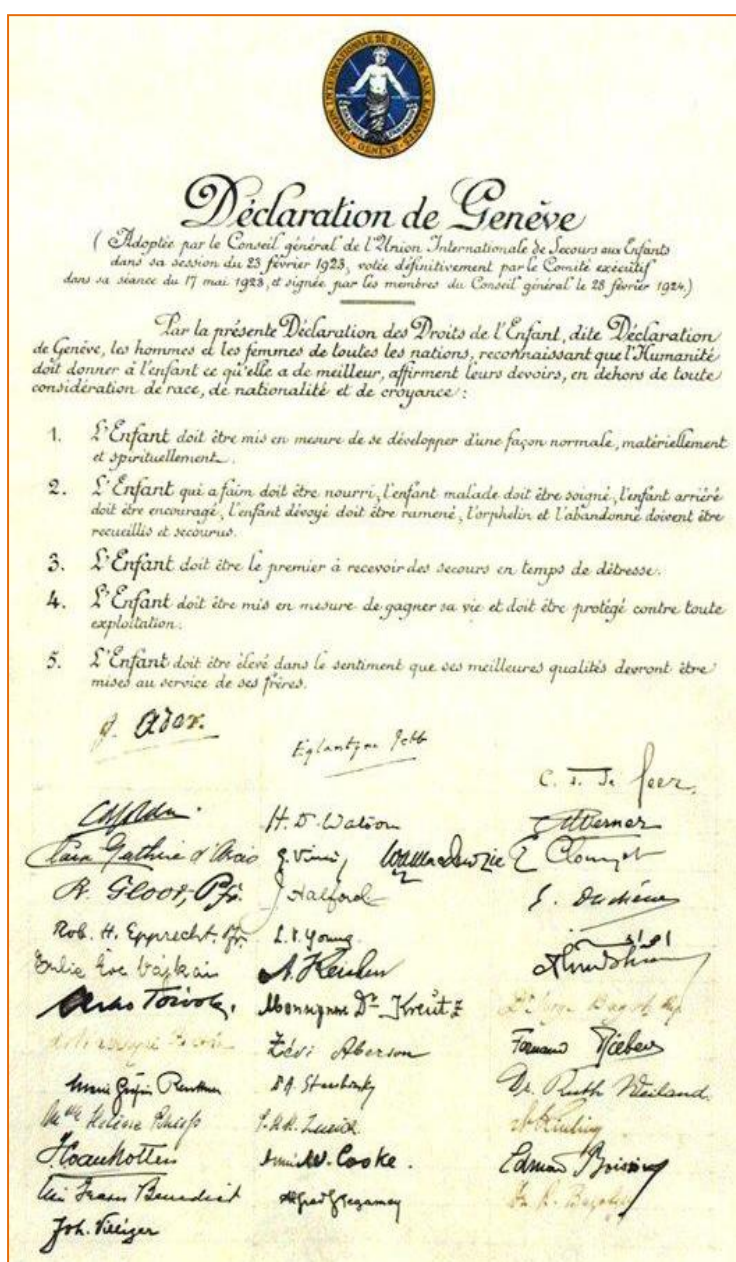 UNION INTERNATIONALE DE SECOURS AUX ENFANTS
GENÈVE
Déclaration de Genève
( Adoptée par le Conseil général de l'Union Internationale de Secours aux Enfants
dans sa session du 23 février 1923, votée définitivement par le Comité exécutif
dans sa séance du 17 mai 1923, et signée par les membres du Conseil général le 28 février 1924.)
Par la présente Déclaration des Droits de l'Enfant, dite Déclaration
de Genève, les hommes et les femmes de toutes les nations, reconnaissant que l'Humanité
doit donner à l'enfant ce qu'elle a de meilleur, affirment leurs devoirs, en dehors de toute
considération de race, de nationalité et de croyance :
1. L'Enfant doit être mis en mesure de se développer d'une façon normale, matériellement
et spirituellement.
2. L'Enfant qui a faim doit être nourri, l'enfant malade doit être soigné, l'enfant arriéré
doit être encouragé, l'enfant dévoyé doit être ramené, l'orphelin et l'abandonné doivent être
recueillis et secourus.
3. L'Enfant doit être le premier à recevoir des secours en temps de détresse.
4. L'Enfant doit être mis en mesure de gagner sa vie et doit être protégé contre toute
exploitation.
5. L'Enfant doit être élevé dans le sentiment que ses meilleures qualités devront être
mises au service de ses frères.
G. Ador.
Eglantyne Jebb
H. D. Watson
Werner
R. Gloor, Pfr.
J. Halford
Rob. H. Epprecht. Pfr.
L. B. Young
Julie Eve Vajkai
Monsignore Dr Kreutz
Zévi Aberson
Dr. Ruth Weiland.
Mme Hélène
Annie W. Cooke.
Benedict
Joh. Villiger